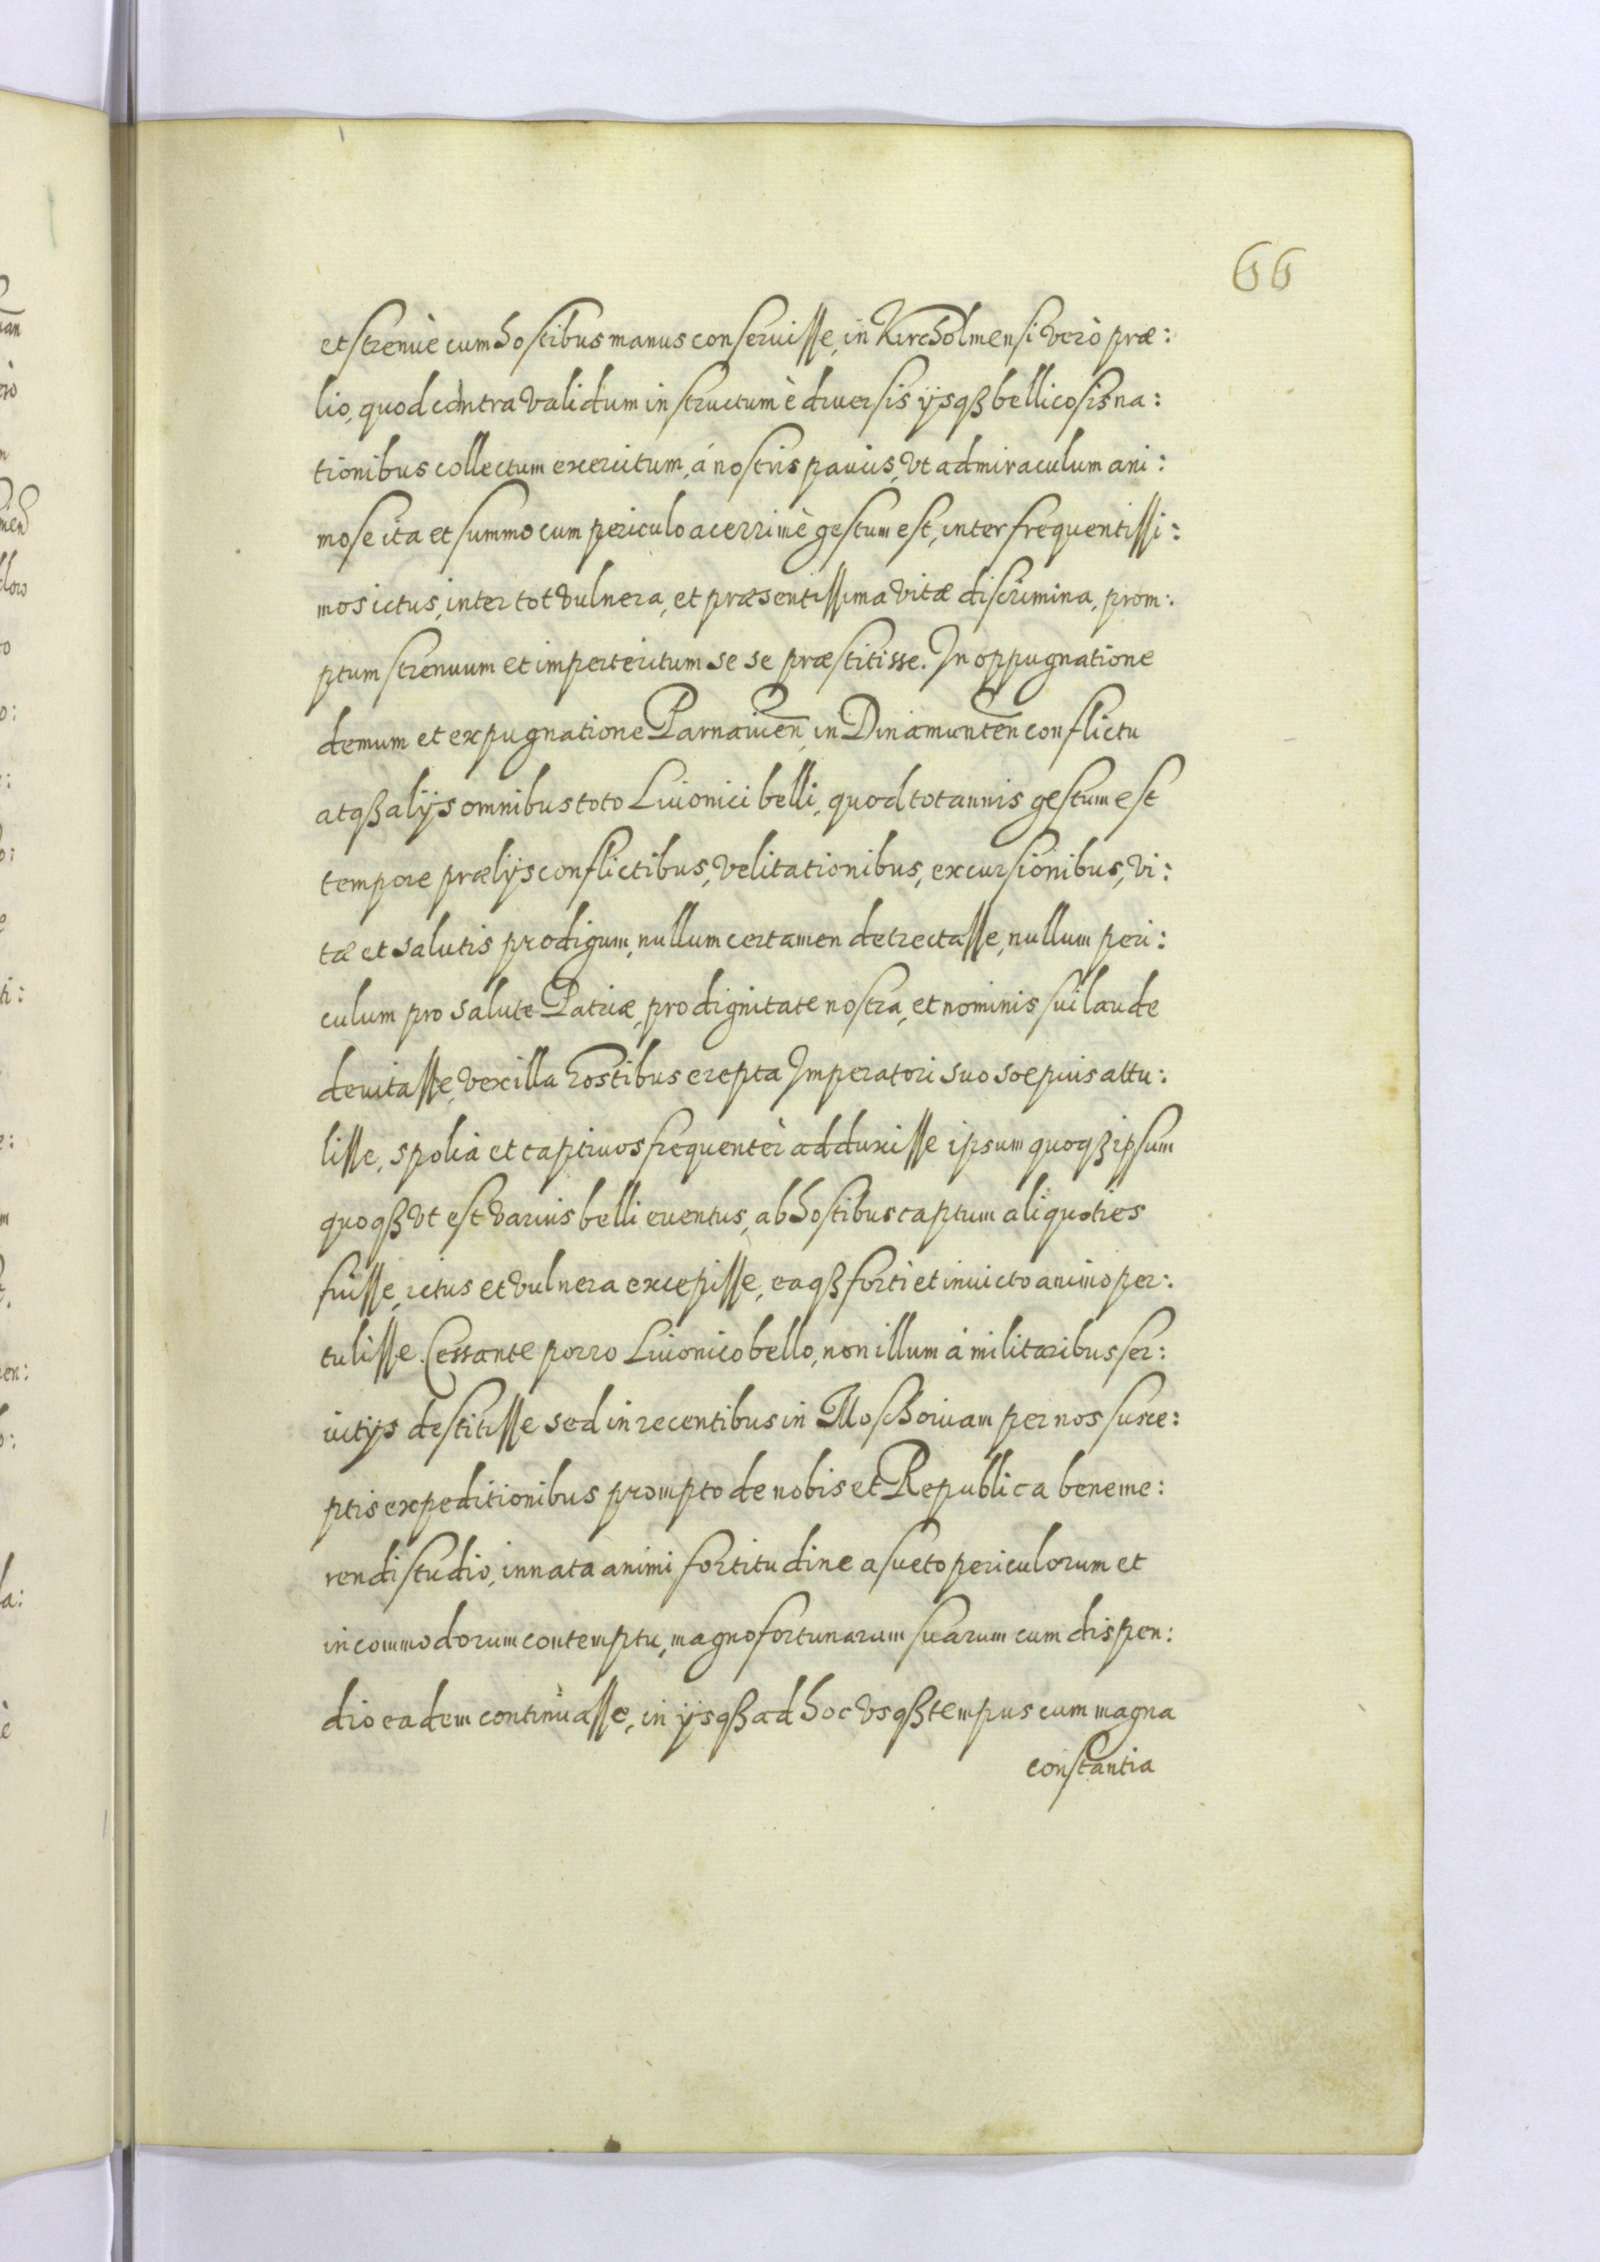 66
et strenuè cum hostibus manus conseruisse, in Kircholmensi verò præ:
lio, quod contra validum instructum è diuersis ijsqꝫ bellicosis na:
tionibus collectum exercitum, á nostris paucis, vt ad miraculum ani:
mose ita et summo cum periculo acerrimè gestum est, inter frequentissi:
mos ictus, inter tot vulnera, et præsentissima vitæ discrimina, prom:
ptum strenuum et imperteritum se se præstitisse. In oppugnatione
demum et expugnatione Parnauien̄, in Dinamunten̄ conflictu
atqꝫ alijs omnibus toto Liuonici belli, quod tot annis gestum est
tempore prælijs conflictibus, velitationibus, excursionibus, vi:
tæ et salutis prodigum, nullum certamen detrectasse, nullum peri:
culum pro salute Patriæ, pro dignitate nostra, et nominis sui laude
deuitasse, vexilla hostibus erepta Imperatori suo sœpius attu:
lisse, spolia et captiuos frequentèr adduxisse ipsum quoqꝫ ipsum
quoqꝫ vt est varius belli euentus, ab hostibus captum aliquoties
fuisse, ictus et vulnera excepisse, eaqꝫ forti et inuicto animo per:
tulisse. Cessante porro Liuonico bello, non illum á militaribus ser:
uitijs destitisse sed in recentibus in Moschouiam per nos susce:
ptis expeditionibus prompto de nobis et Republica beneme:
rendi studio, innata animi fortitudine asueto periculorum et
incommodorum contemptu, magno fortunarum suarum cum dispen:
dio eadem continuasse, in ijsqꝫ ad hoc vsqꝫ tempus cum magna
constantia